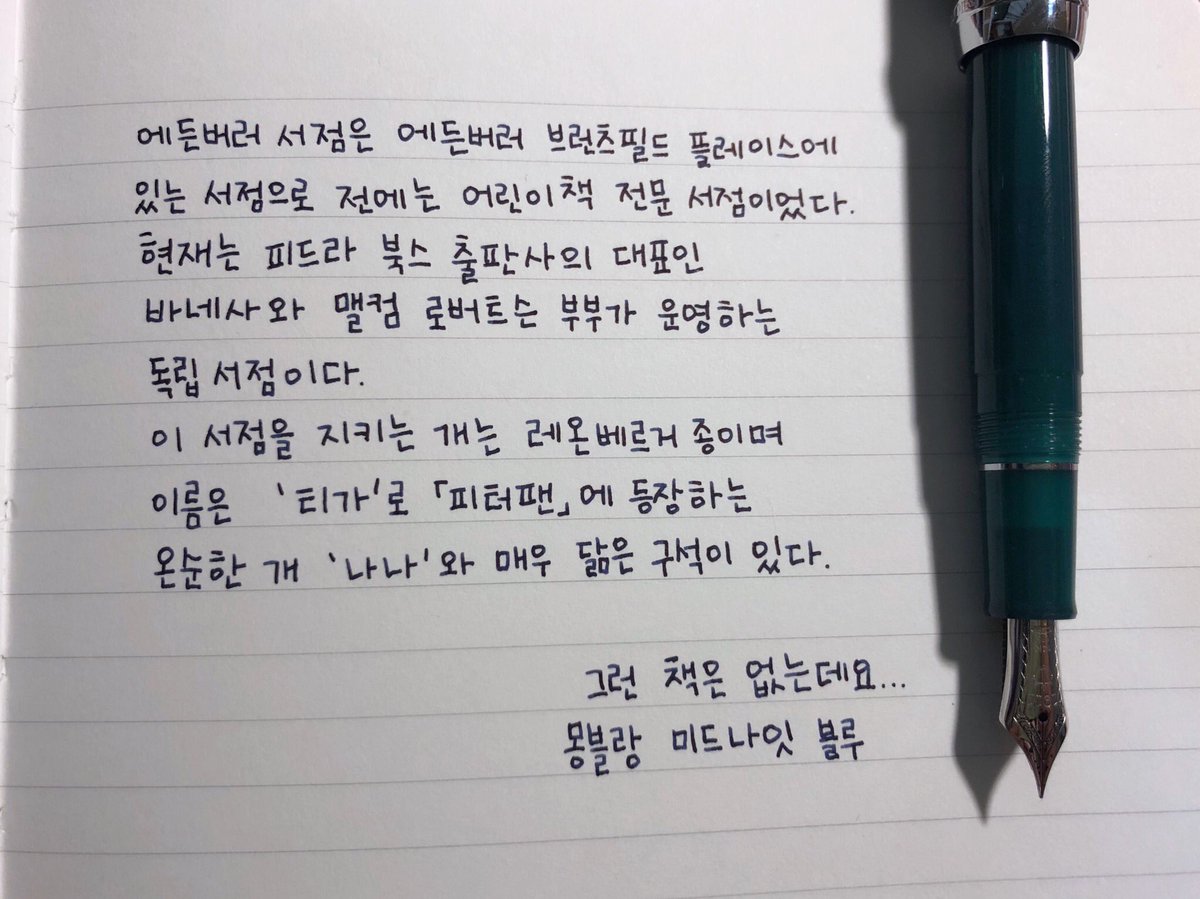 에든버러 서점은 에든버러 브런츠필드 플레이스에
있는 서점으로 전에는 어린이책 전문 서점이었다.
현재는 피드라 북스 출판사의 대표인
바네사와 맬컴 로버트슨 부부가 운영하는
독립 서점이다.
이 서점을 지키는 개는 레온베르거 종이며
이름은 '티가'로 「피터팬」에 등장하는
온순한 개 '나나'와 매우 닮은 구석이 있다.
그런 책은 없는데요...
몽블랑 미드나잇 블루